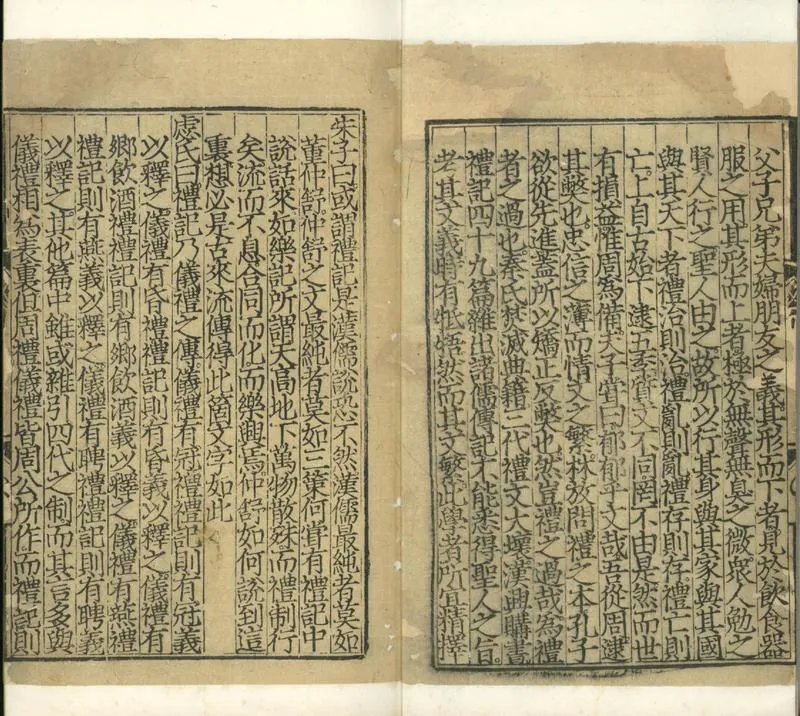 父子兄弟夫婦朋友之義其形而下者見於飲食器
服之用其形而上者極於無聲無臭之微衆人勉之
賢人行之聖人由之故所以行其身與其家與其國
與其天下者禮治則治禮亂則亂禮存則存禮亡則
亡上自古始下逮五季質文不同罔不由是然而世
有損益惟周為備夫子嘗曰郁郁乎文哉吾從周逮
其弊也忠信之薄而情文之繁林放問禮之本孔子
欲從先進蓋所以矯正反弊也然豈禮之過哉為禮
者之過也秦氏焚滅典籍三代禮文大壞漢興購書
禮記四十九篇雜出諸儒傳記不能悉得聖人之旨
考其文義時有牴牾然而其文繁此學者所宜精擇
朱子曰或謂禮記是漢儒說恐不然漢儒最純者莫如
董仲舒仲舒之文最純者莫如三策何嘗有禮記中
說話來如樂記所謂天高地下萬物散殊而禮制行
矣流而不息合同而化而樂興焉仲舒如何說到這
裏想必是古來流傳得此箇文字如此
虙氏曰禮記乃儀禮之傳儀禮有冠禮禮記則有冠義
以釋之儀禮有昏禮禮記則有昏義以釋之儀禮有
鄉飲酒禮禮記則有鄉飲酒義以釋之儀禮有燕禮
禮記則有燕義以釋之儀禮有聘禮禮記則有聘義
以釋之其他篇中雖或雜引四代之制而其言多與
儀禮相為表裏但周禮儀禮皆周公所作而禮記則